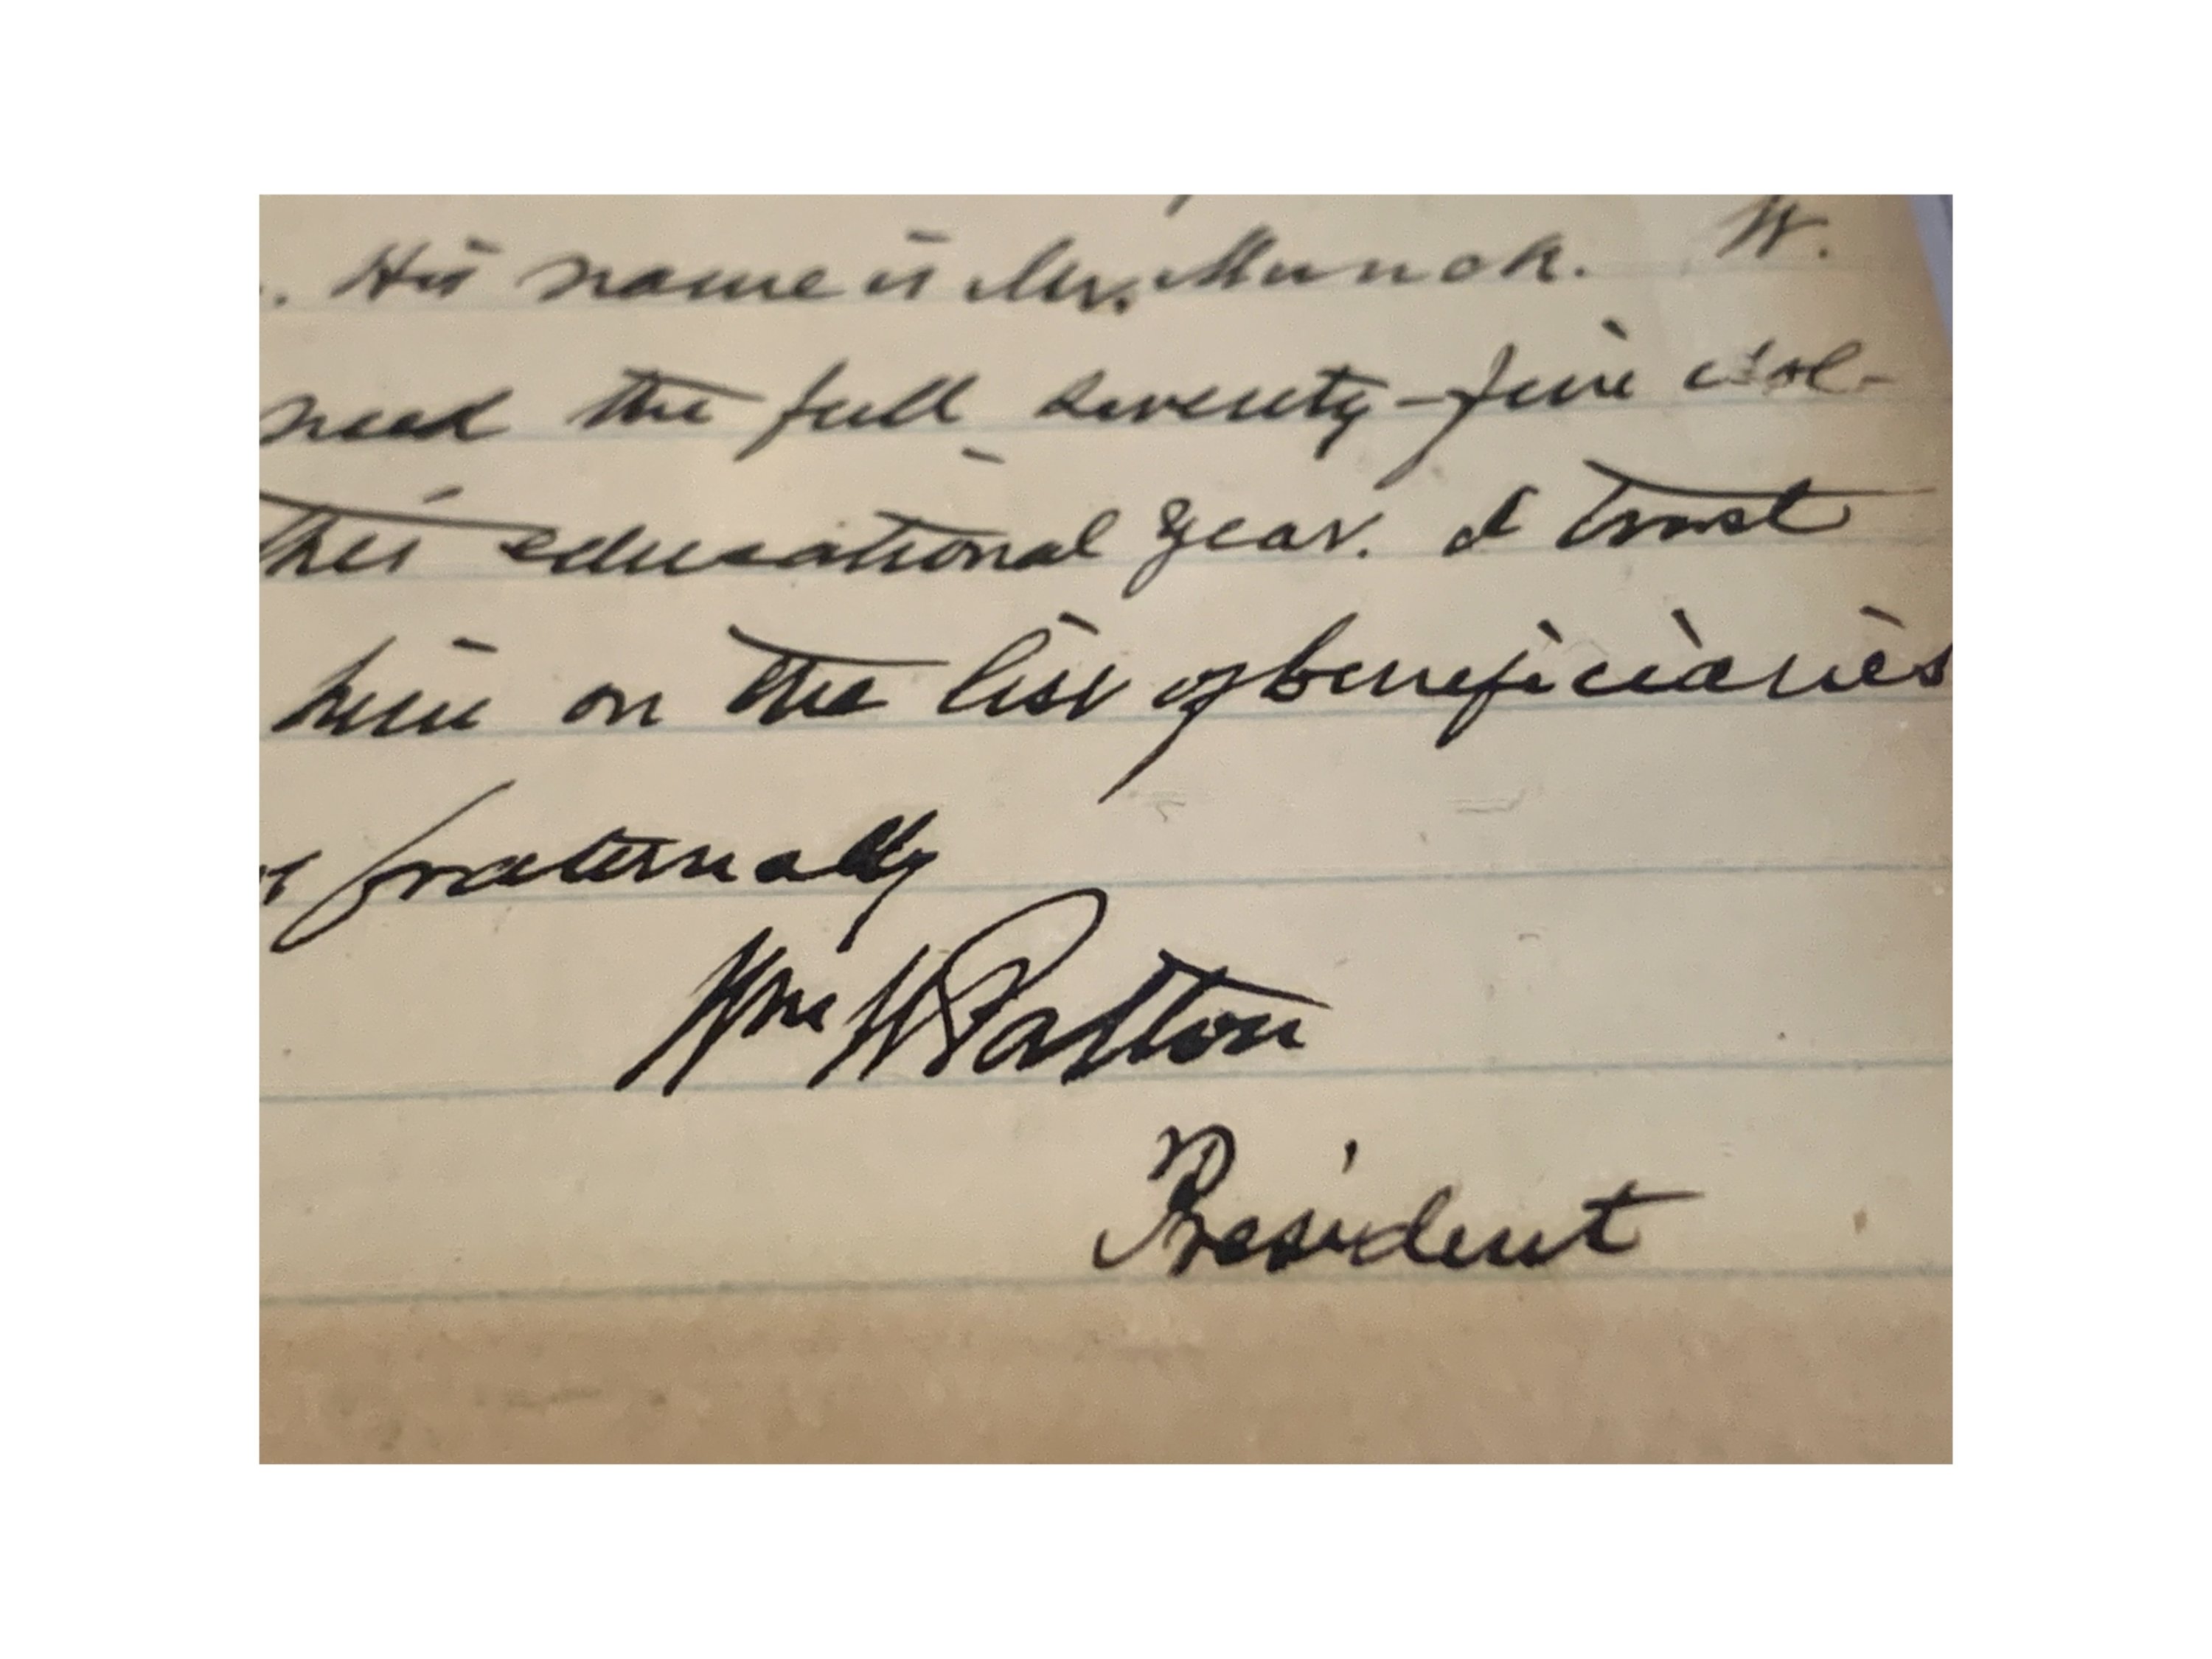 . His name is Mr. Munch. W.
need the full seventy-five dol-
this educational year. I trust
him on the list of beneficiaries
fraternally
Wm W Patton
President